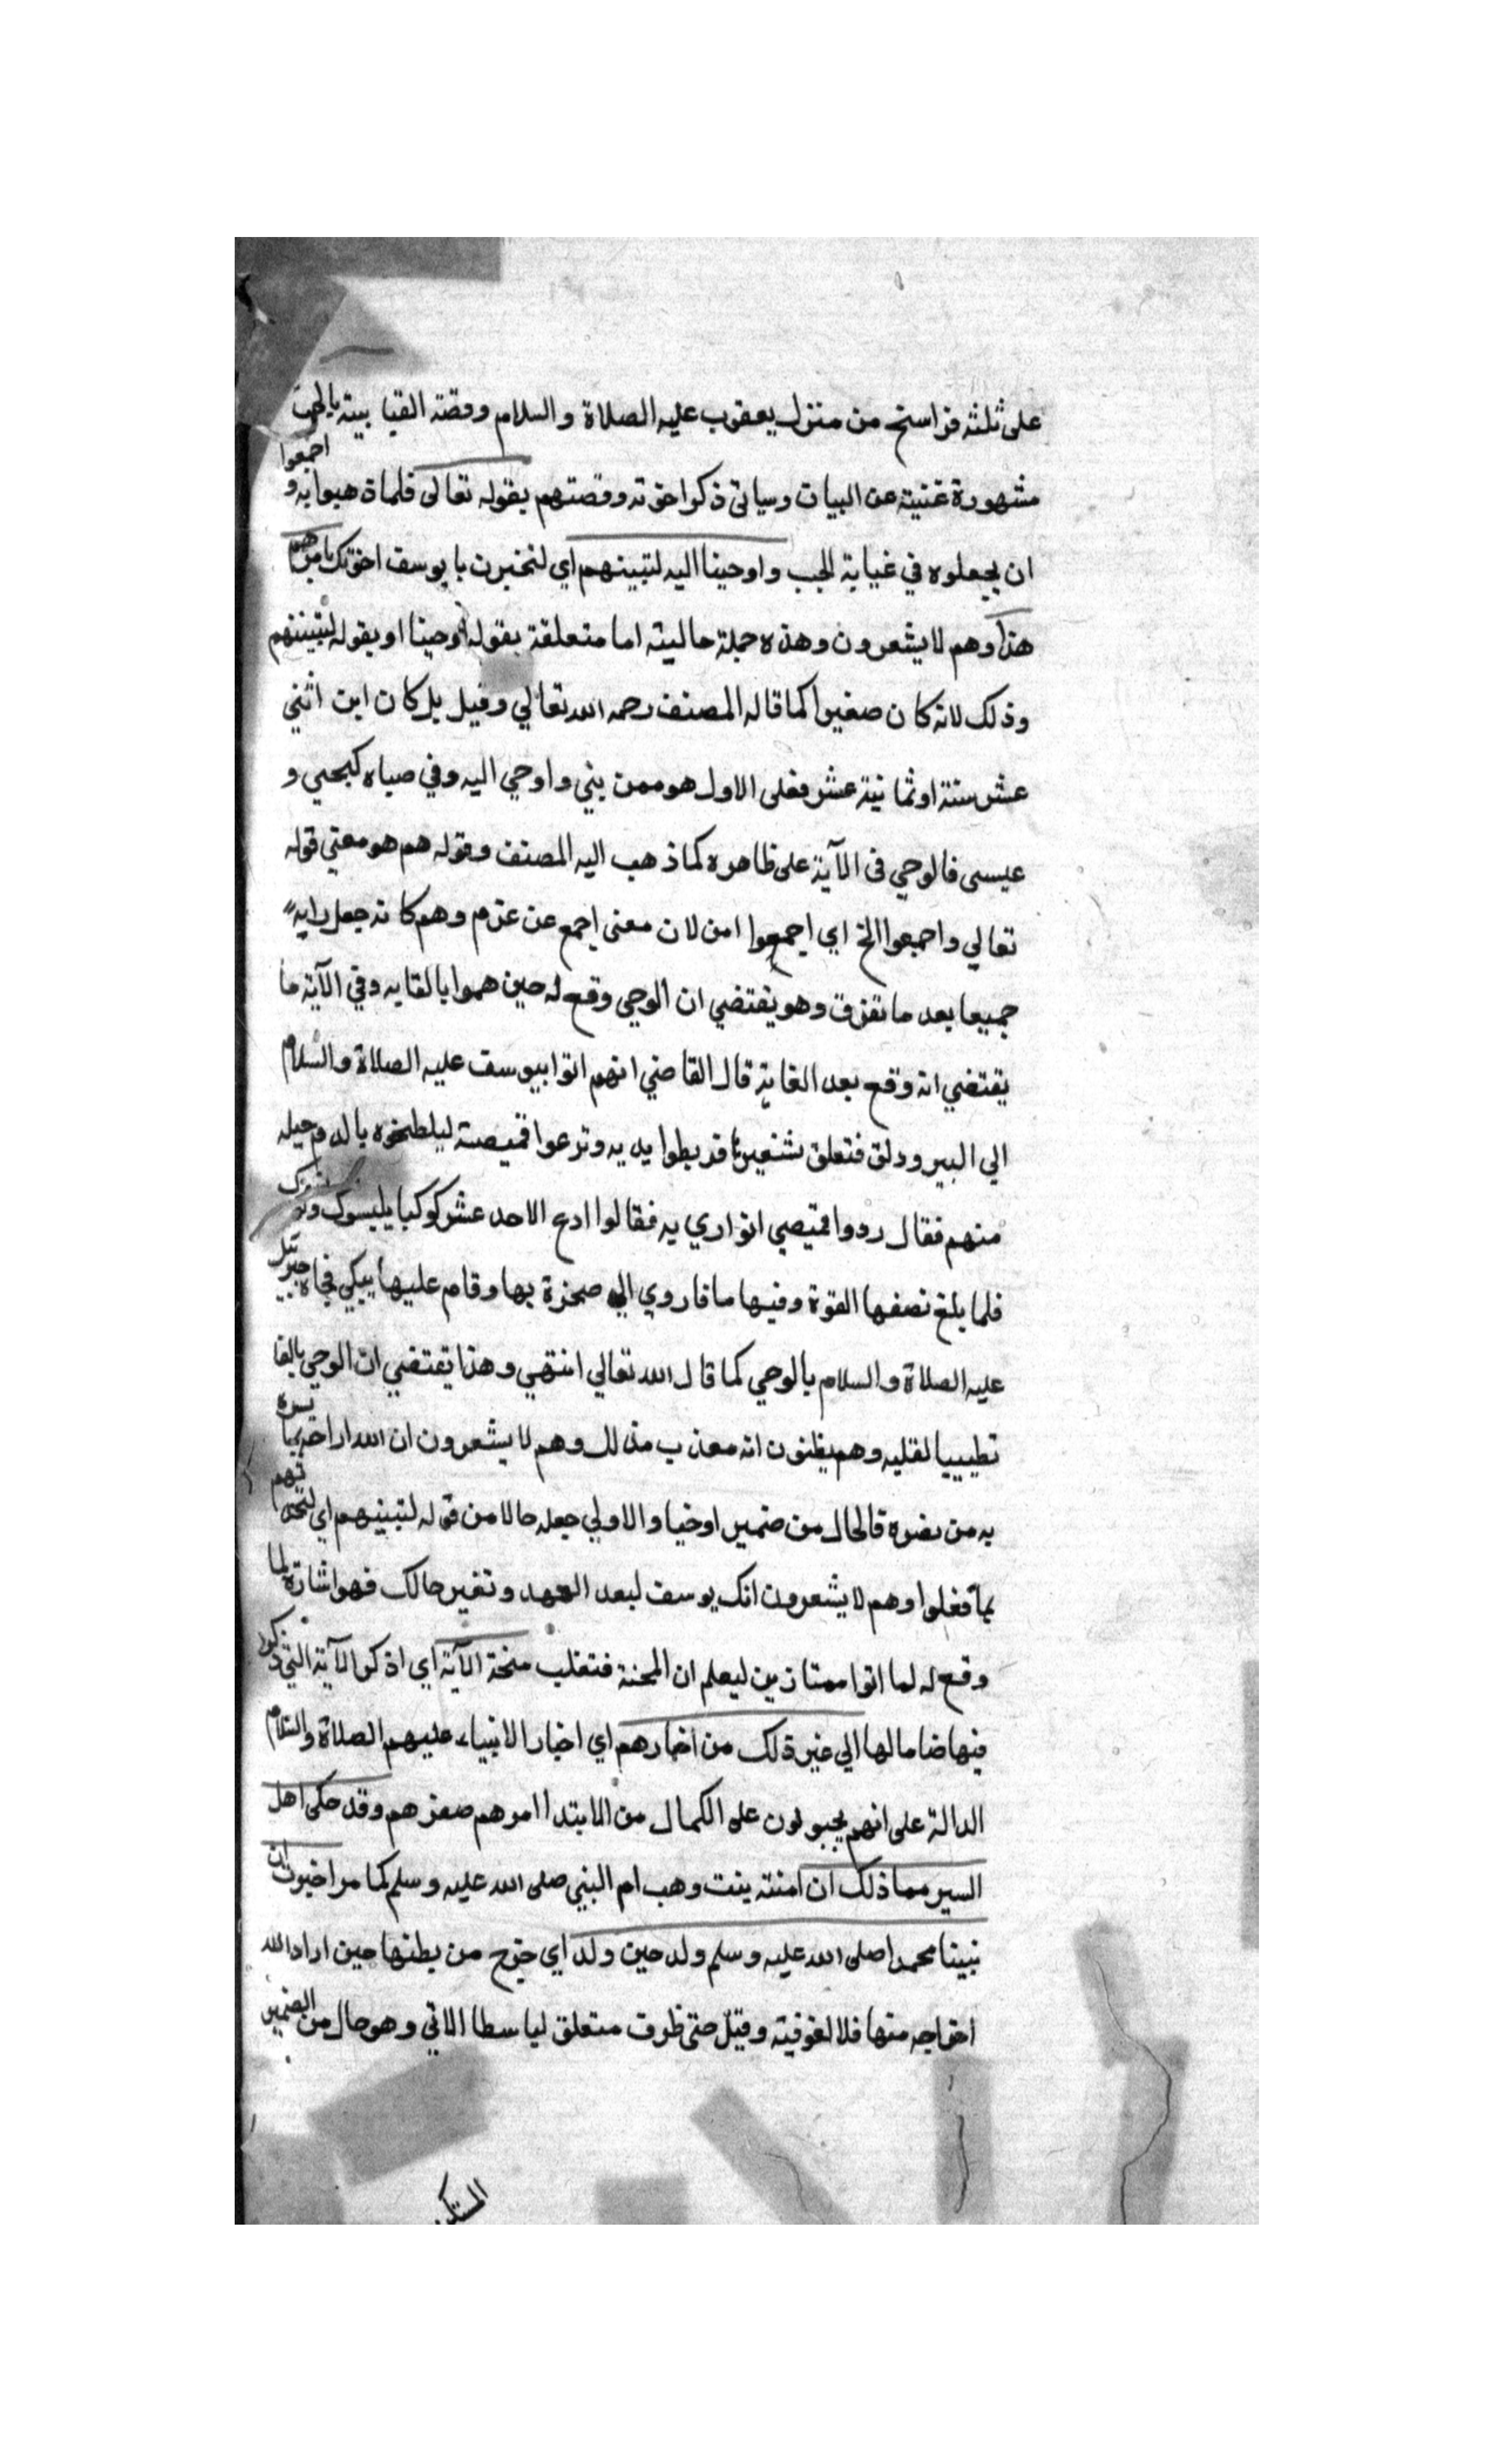 على ثلثه فراسخ من منزل يعقوب عليه الصلاة والسلام وقصة القيا بيته بالجب
مشهورة غنية عن البيات وسياتي ذكر اخوته وقصتهم يقوله تعالى فلما ذهبوا به و اجمعوا
ان يجعلوه في غيابة الجب واوحينا اليه لتبينهم اي لتخبرن يا يوسف اخوتك بامرهم
هذا وهم لا يشعرون وهذه جملة حالية اما متعلقة بقوله اوحينا او بقوله لتبيننهم
وذلك لانه كان صغيرا كما قاله المصنف رحمه الله تعالي وقيل بل كان ابن اثني
عشر سنة او ثمانية عشر فعلى الاول هو ممن نبي واوحي اليه وفي صباه كيحيي و
عيسى فالوحي في الآية على ظاهره كما ذهب اليه المصنف وقوله هم هو معني قوله
تعالي واجمعوا الخ اي اجمعوا امن لان معنى اجمع عن عزم وهم كانه جعل رايه
جميعا بعد ما تفرق وهو يقتضي ان الوحي وقع له حين هموا بالقايه وفي الآية ما
يقتضي انه وقع بعد الغاية قال القاضي انهم اتوا بيوسف عليه الصلاة والسلام
الي البير ودلق فتعلق بشفيرها فربطوا يديه ونزعوا قميصته ليلطخوه بالدم حيله
منهم فقال ردوا قميصي اتواري به فقالوا ادع الاحد عشر كوكبا يلبسوك
فلما بلغ نصفها القوة وفيها ما فاروي الي صخرة بها وقام عليها يبكي فجاه جبرئيل
عليه الصلاة والسلام بالوحي كما قال الله تعالي انتهي وهذا يقتضي ان الوحي بالقا
تطييبا لقلبه وهم يظنون انه معذب مذلك وهم لا يشعرون ان الله اراحه بما يسره
به من نضوه قالحال من ضمير اوحيا والاولي جعله حالا من قوله لتبينهم اي لتحدثهم
بما فعلوا وهم لا يشعرون انك يوسف لبعد العهد وتغير حالك فهو اشارة لما
وقع له لما اتوا ممتازين ليعلم ان المحنة فتقلب منحة الآية اي اذكر الآية التي ذكور
فيها ضاما لها الي غير ذلك من اخبارهم اي اخبار الانبياء عليهم الصلاة والسلام
الدالة على انهم يجبولون على الكمال من الابتدا امرهم صغرهم وقد حكى اهل
السير مما ذلك ان امنته بنت وهب ام النبي صلى الله عليه وسلم كما مر اخبرت ان
نبينا محمدا صلى الله عليه وسلم ولد حين ولد اي خرج من بطنها حين اراد الله
اخراجه منها فلا لغوفيته وقيل حتى ظرف متعلق لباسطا الاتي وهو حال من الضمير
المستكن